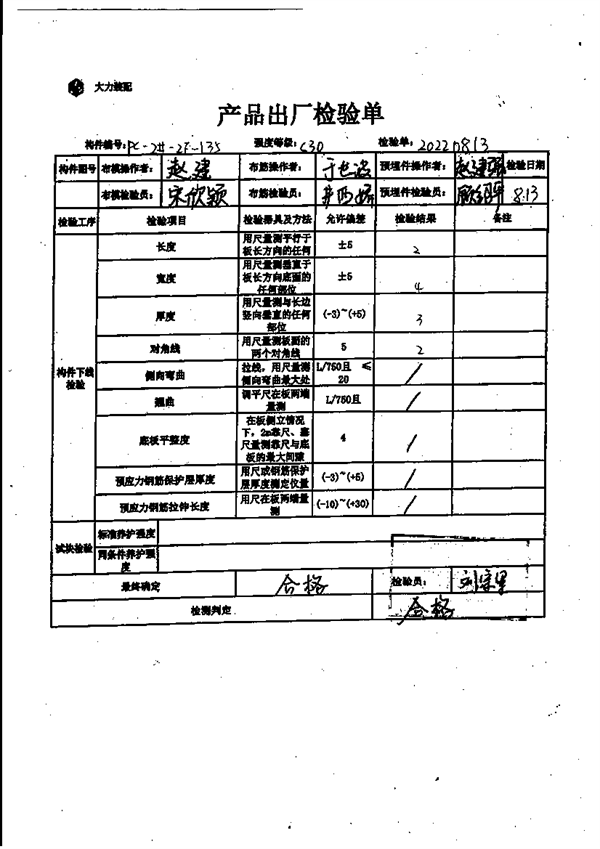 大力装配
产品出厂检验单
构件编号: PC-2#-2F-135 强度等级: C30 检验单: 20220813
构件图号 布模操作者: 赵建 布筋操作者: 预埋件操作者: 赵建强 检验日期
布模检验员: 宋欣颖 布筋检验员: 预埋件检验员: 8.13
检验工序 检验项目 检验器具及方法 允许偏差 检验结果 备注
构件下线检验
长度 用尺量测平行于板长方向的任何 ±5 2
宽度 用尺量测垂直于板长方向底面的任何部位 ±5 4
厚度 用尺量测与长边竖向垂直的任何部位 (-3)~(+5) 3
对角线 用尺量测板面的两个对角线 5 2
侧向弯曲 拉线,用尺量测侧向弯曲最大处 L/750且 ≤20 /
翘曲 调平尺在板两端量测 L/750且 /
底板平整度 在板侧立情况下,2m靠尺、塞尺量测靠尺与底板的最大间隙 4 /
预应力钢筋保护层厚度 用尺或钢筋保护层厚度测定仪量 (-3)~(+5) /
预应力钢筋拉伸长度 用尺在板两端量测 (-10)~(+30) /
试块检验 标准养护强度
同条件养护强度
最终确定 合格 检验员:
检测判定 合格